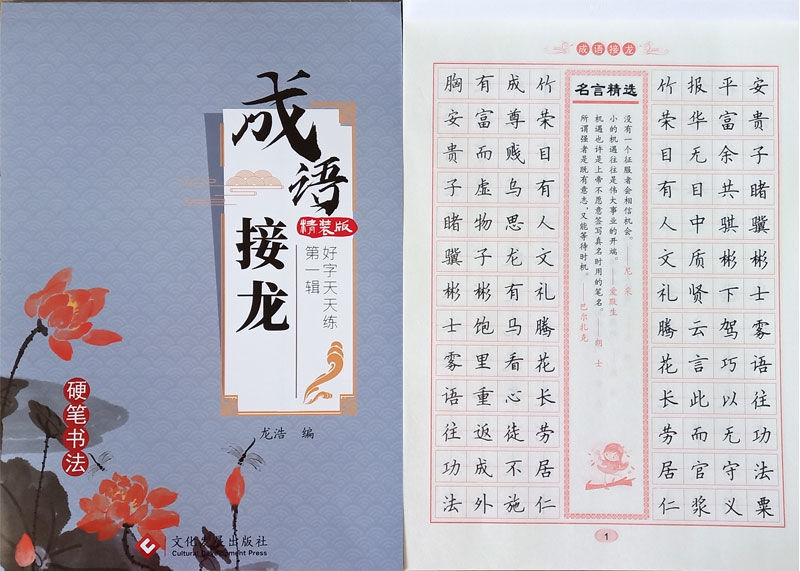 成语
接龙
精装版
好字天天练
第一辑
硬笔书法
龙浩 编
文化发展出版社
Cultural Development Press
成语接龙
安贵子睹骥彬士雾语往功法粟
平富余共骐彬下驾巧以无守义
报华无目中质贤云言此而官浆
竹荣目有人文礼腾花长劳居仁
名言精选
没有一个征服者会相信机会。——尼采
小的机遇往往是伟大事业的开端。——爱默生
机遇也许是上帝不愿意签写真名时用的笔名。——朗士
所谓强者是既有意志，又能等待时机。——巴尔扎克
竹荣目有人文礼腾花长劳居仁
成尊贱乌思龙有马看心徒不施
有富而虚物子彬饱里重返成外
胸安贵子睹骥彬士雾语往功法
1